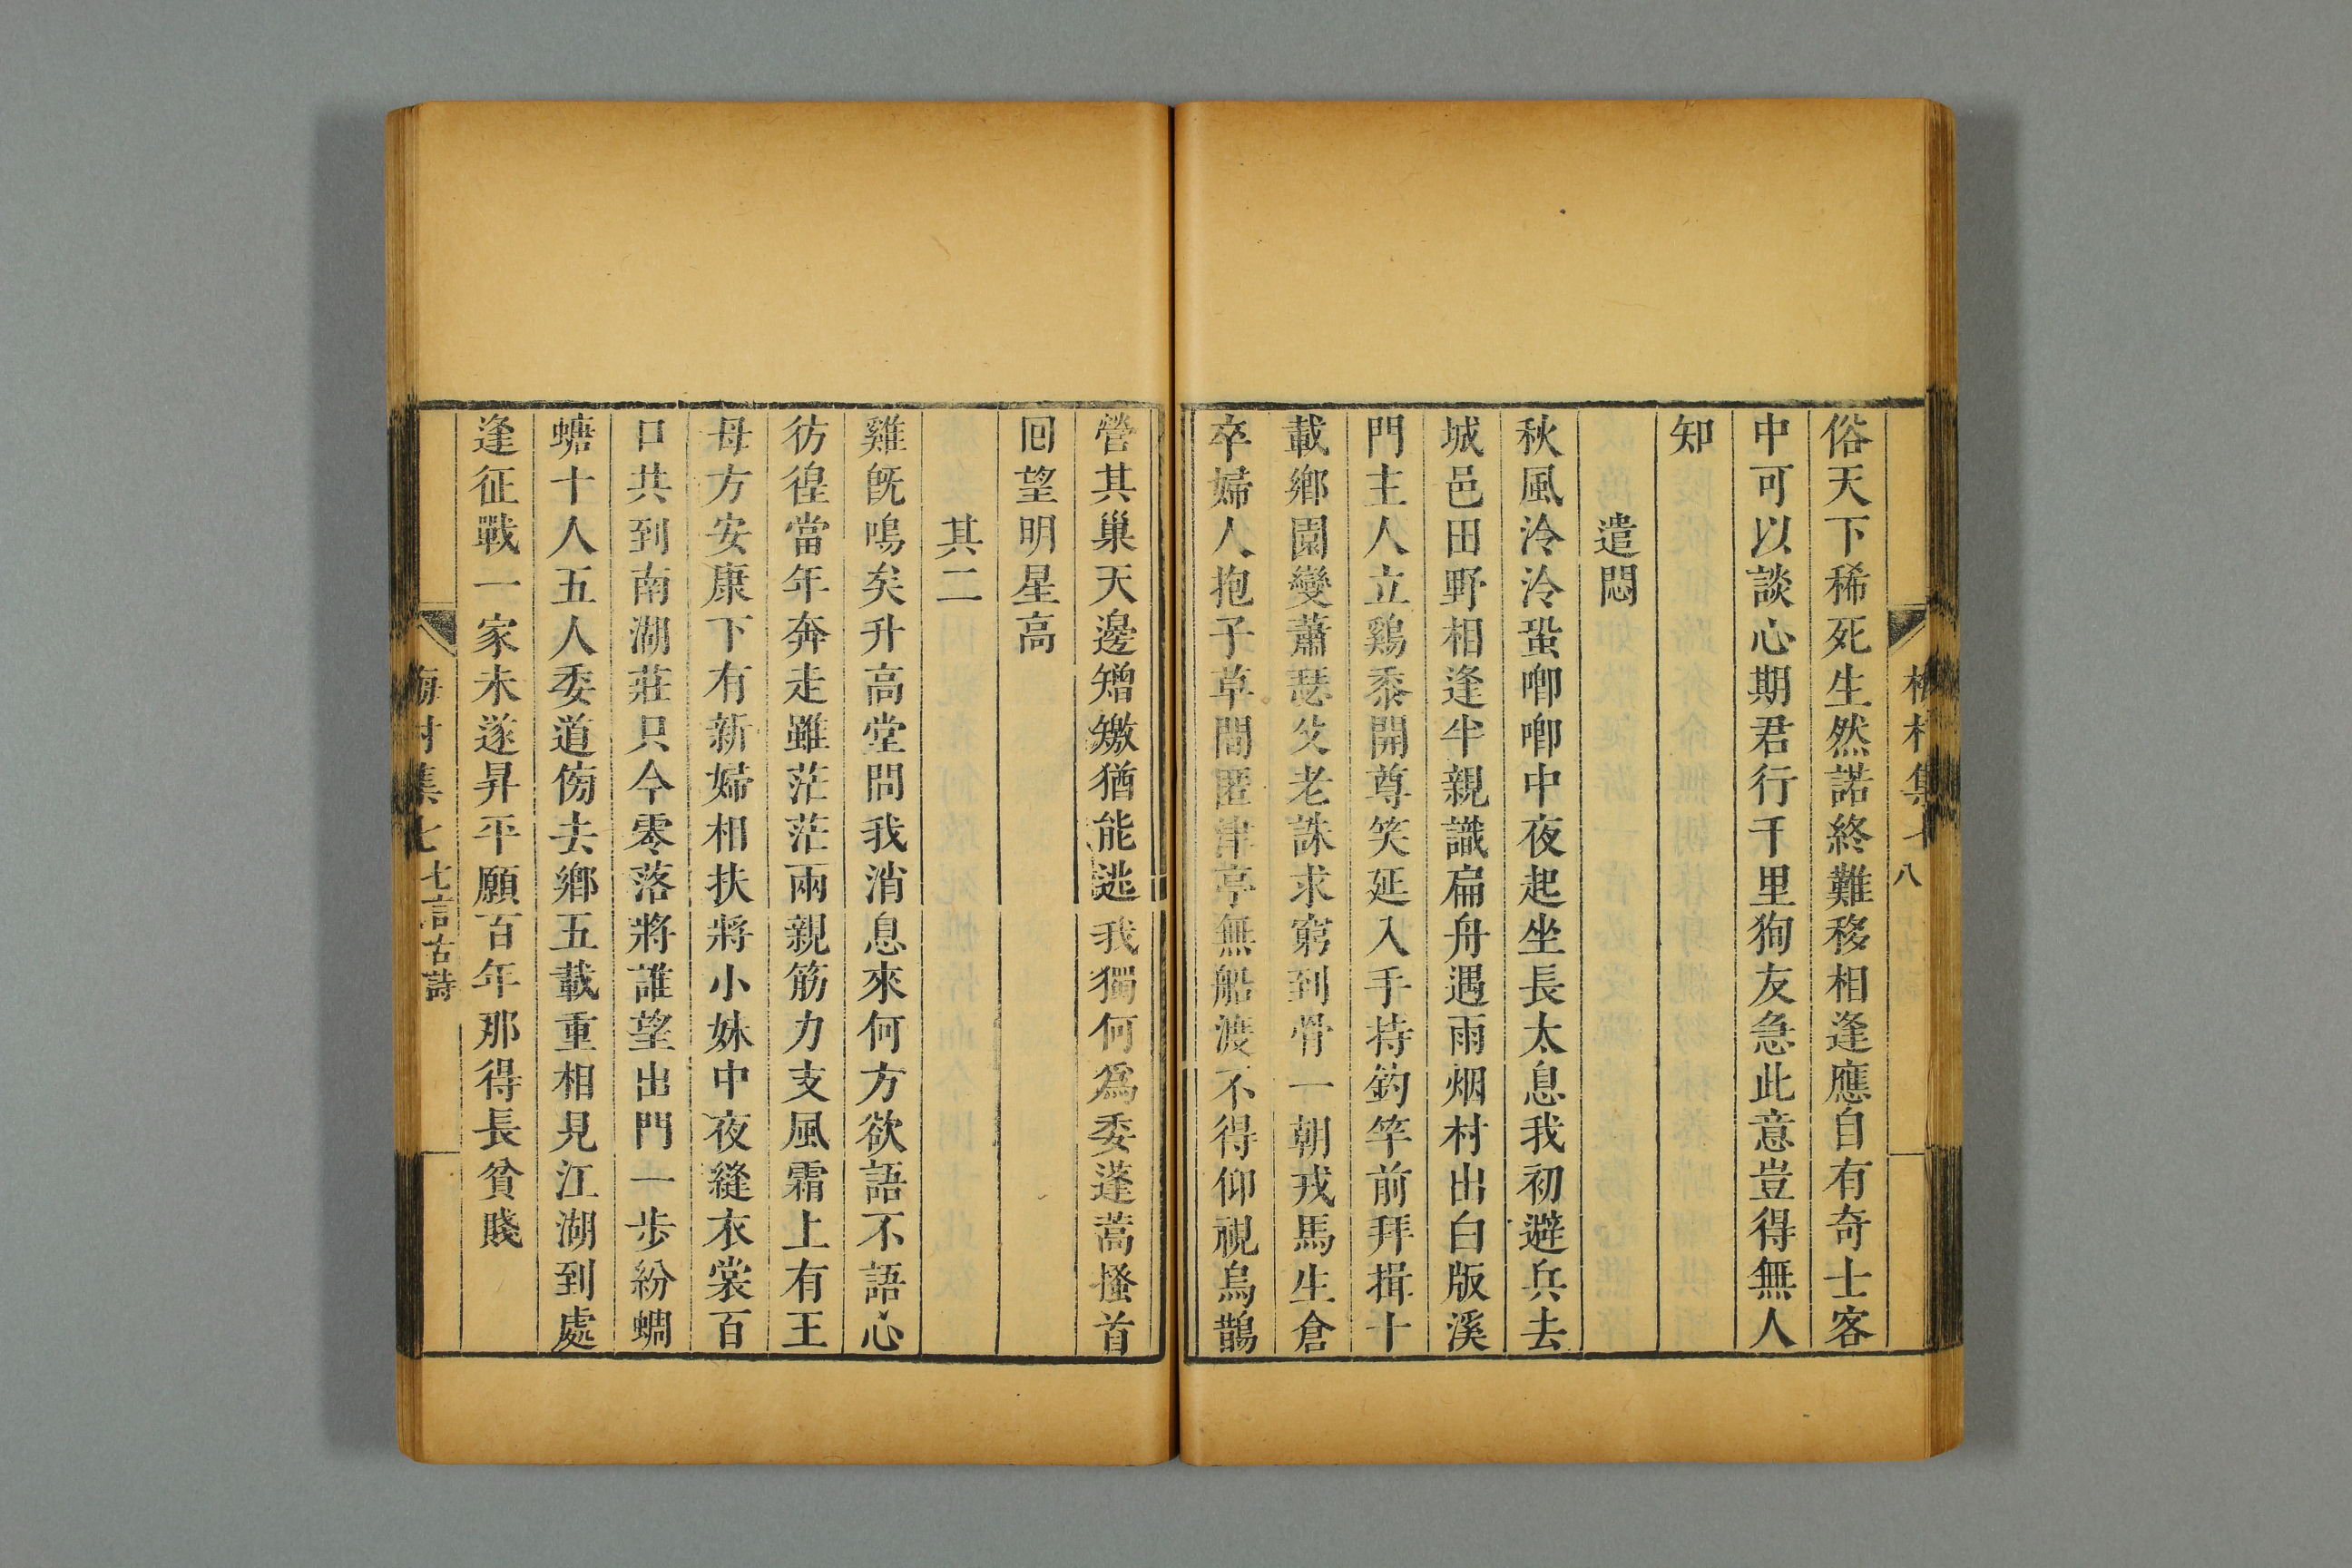 八
俗天下稀死生然諾終難移相逢應自有奇士客
中可以談心期君行千里狥友急此意豈得無人
知
遣悶
秋風泠泠蛩唧唧中夜起坐長太息我初避兵去
城邑田野相逢半親識扁舟遇雨烟村出白版溪
門主人立鷄黍開尊笑延入手持釣竿前拜揖十
載鄉園變蕭瑟父老誅求窮到骨一朝戎馬生倉
卒婦人抱子草間匿津亭無船渡不得仰視烏鵲
營其巢天邊矰繳猶能逃我獨何爲委蓬蒿搔首
回望明星高
其二
雞旣鳴矣升高堂問我消息來何方欲語不語心
彷徨當年奔走雖茫茫兩親筋力支風霜上有王
母方安康下有新婦相扶將小妹中夜縫衣裳百
口共到南湖莊只今零落將誰望出門一步紛蜩
螗十人五人委道傍去鄉五載重相見江湖到處
逢征戰一家未遂昇平願百年那得長貧賤
梅村集七 七言古詩